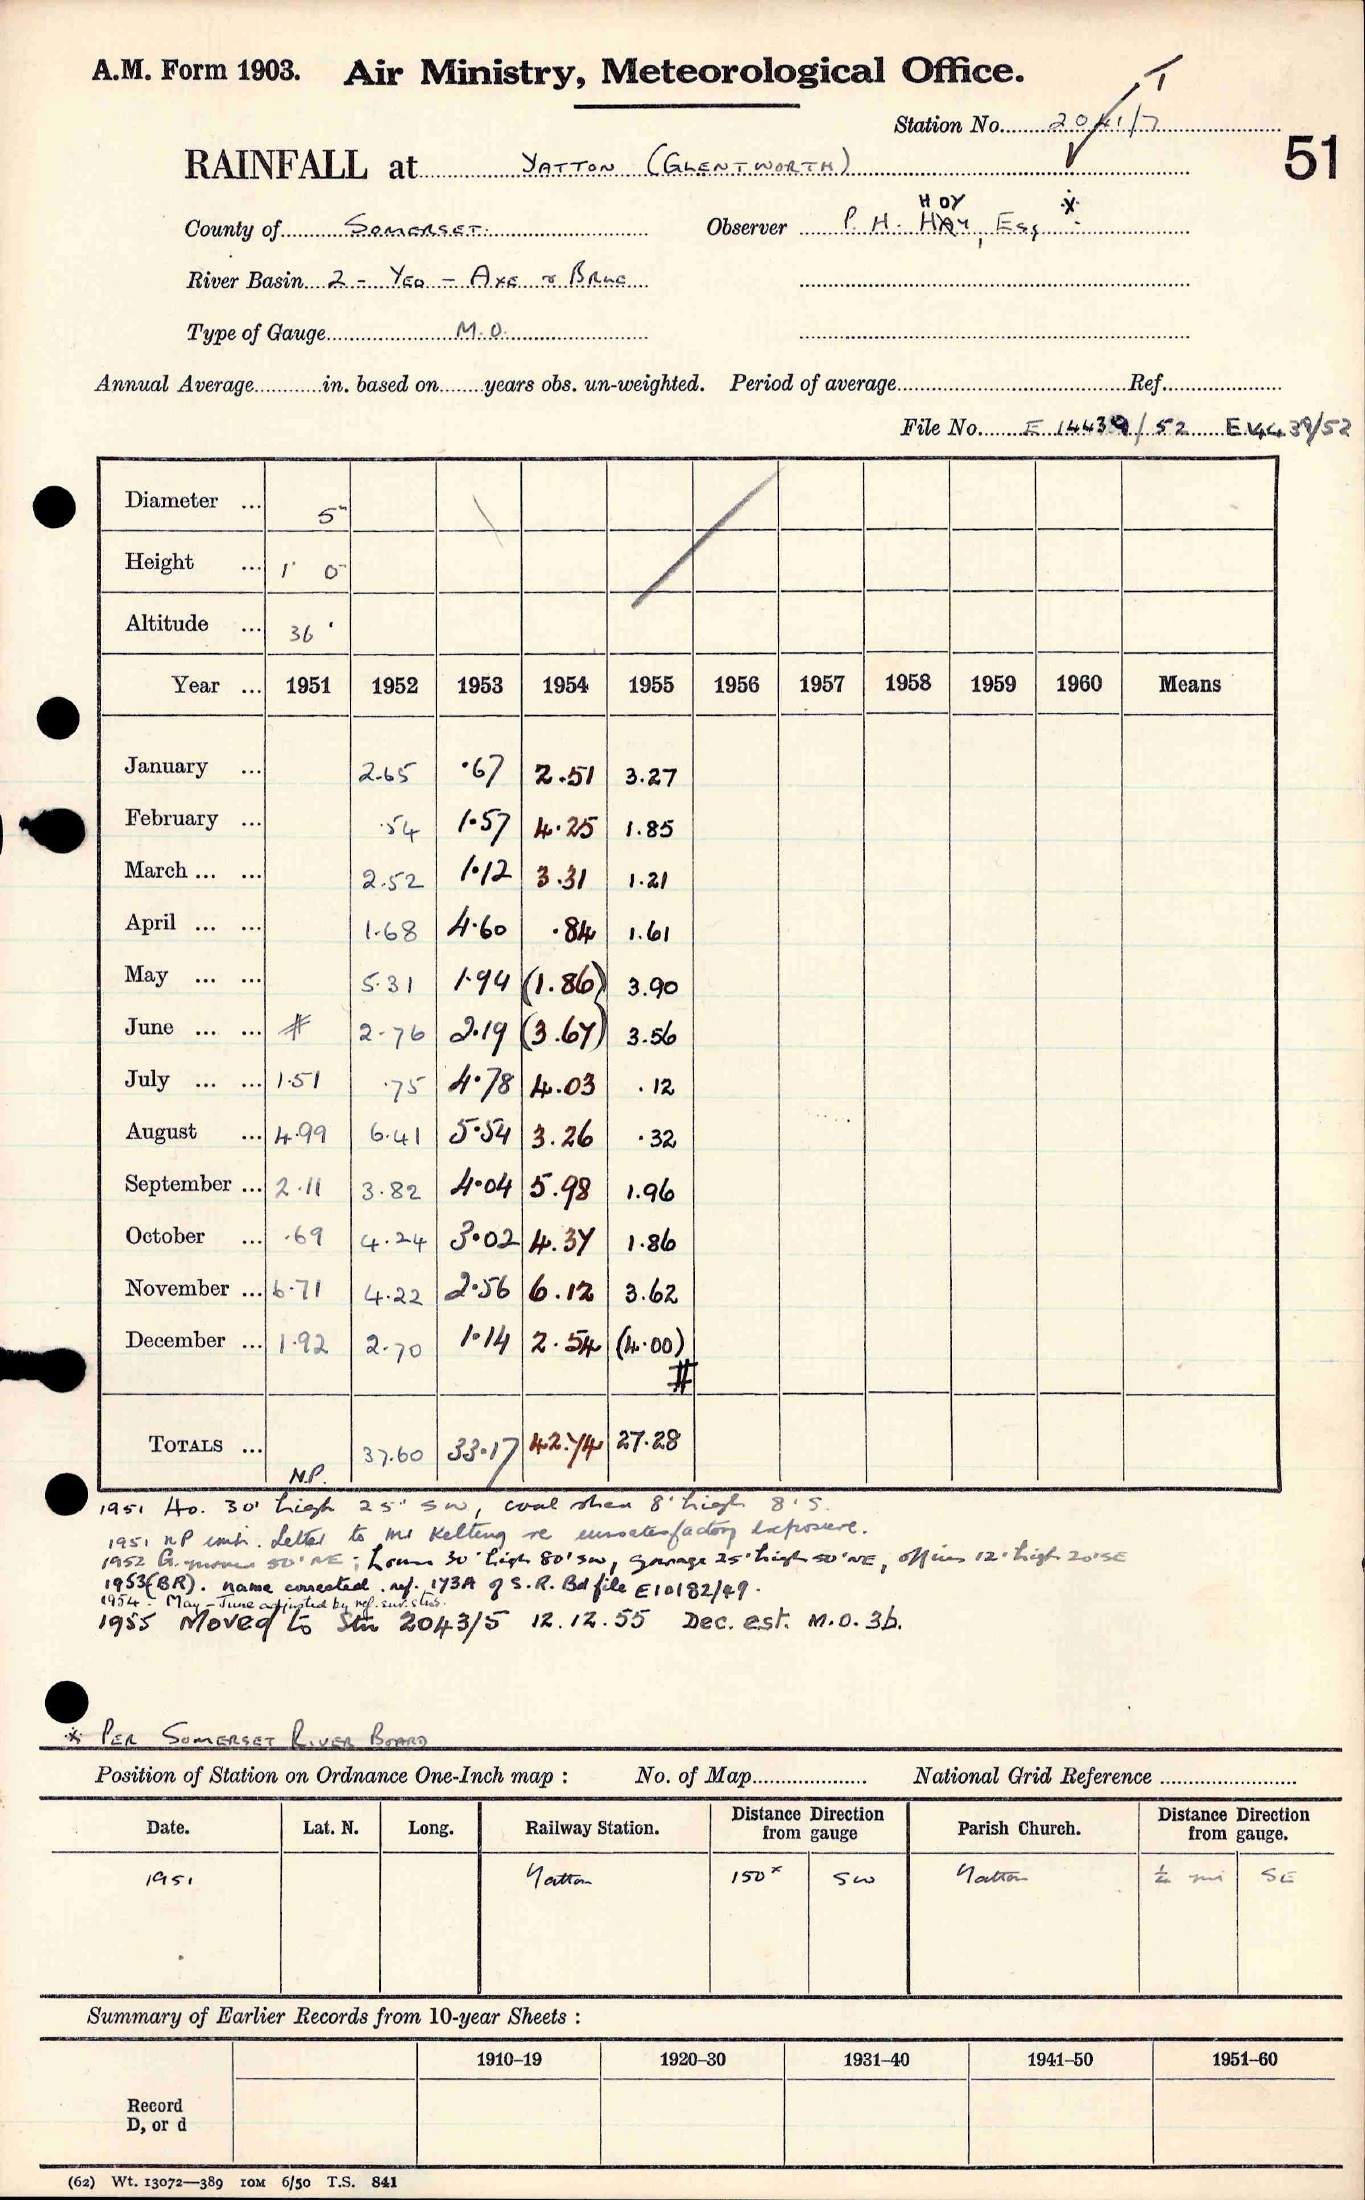 A.M. Form 1903. Air Ministry, Meteorological Office.
Station No. 2041/7
51
RAINFALL at YATTON (GLENTWORTH)
HOY
County of SOMERSET. Observer P. H. HAY, Esq *
River Basin 2 - YEO - AXE & BRUE
Type of Gauge M.O.
Annual Average in. based on years obs. un-weighted. Period of average Ref.
File No. E 14439/52 E14439/52
Diameter ... 5"
Height ... 1' 0"
Altitude ... 36'
Year ... 1951 1952 1953 1954 1955 1956 1957 1958 1959 1960 Means
January ... 2.65 .67 2.51 3.27
February ... .54 1.57 4.25 1.85
March ... ... 2.52 1.12 3.31 1.21
April ... ... 1.68 4.60 .84 1.61
May ... ... 5.31 1.94 (1.86) 3.90
June ... ... # 2.76 2.19 (3.67) 3.56
July ... ... 1.51 .75 4.78 4.03 .12
August ... 4.99 6.41 5.54 3.26 .32
September ... 2.11 3.82 4.04 5.98 1.96
October ... .69 4.24 3.02 4.37 1.86
November ... 6.71 4.22 2.56 6.12 3.62
December ... 1.92 2.70 1.14 2.54 (4.00)
#
TOTALS ... 37.60 33.17 42.74 27.28
N.P.
1951 Ho. 30' high 25' SW, coal shed 8' high 8' S.
1951 NP Letter to Mr Kelting re unsatisfactory exposure.
1952 G. moved 50' NE; house 30' high 80' SW, garage 25' high 50' NE, 12' high 20' SE
1953 (BR). name corrected. ref. 173A of S.R. Bd file E10182/49.
1954 - May - June adjusted by ref. sur. stns.
1955 Moved to Stn 2043/5 12.12.55 Dec. est. M.O. 3b.
* PER SOMERSET RIVER BOARD
Position of Station on Ordnance One-Inch map : No. of Map National Grid Reference
Date. Lat. N. Long. Railway Station. Distance Direction from gauge Parish Church. Distance Direction from gauge.
1951 Yatton 150x SW Yatton ½ mi SE
Summary of Earlier Records from 10-year Sheets :
1910–19 1920–30 1931–40 1941–50 1951–60
Record
D, or d
(62) Wt. 13072—389 10M 6/50 T.S. 841